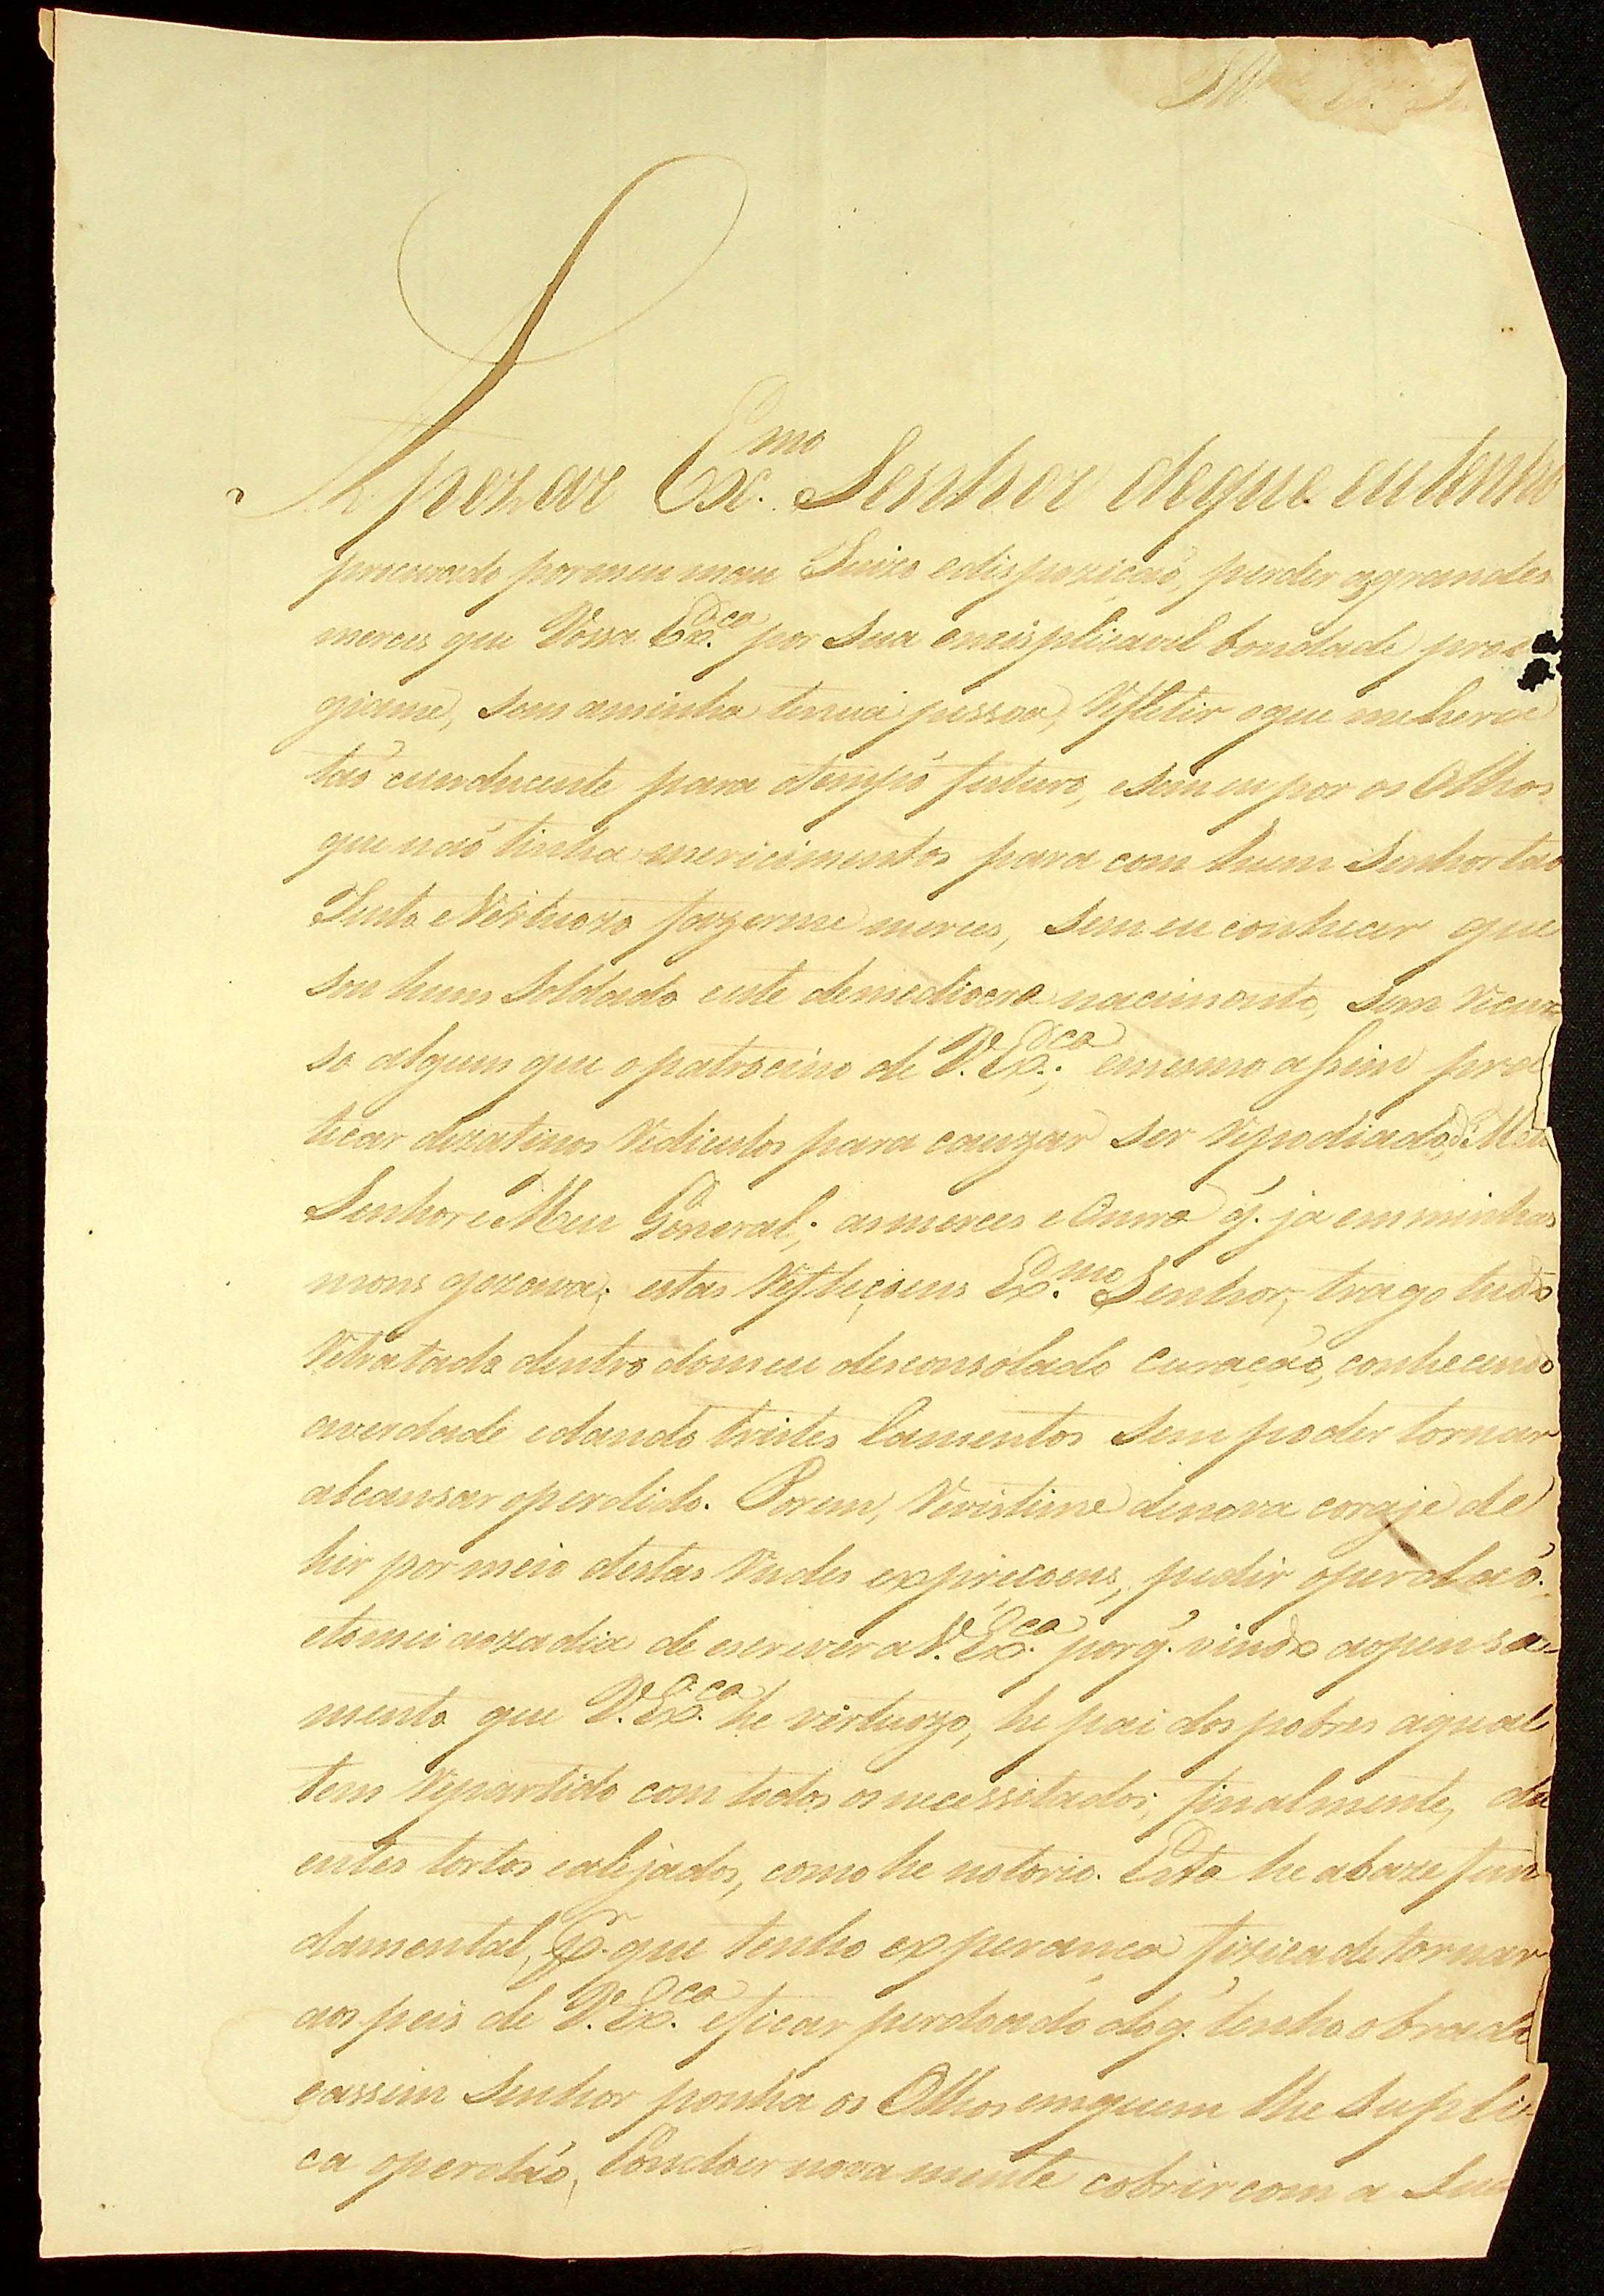 Ill.mo Ex.mo Se
Apezar Ex.mo Senhor deque eu tenho
procurado pormeu mau Juizo edispozição, perder asgrandes
merces que Vossa Ex.ca por Sua enexplicavel bondade prote
giame, Sem aminha tenua pessoa, Refletir oque mehera
tão cunducente para otempo futuro, esem eu por os Olhos
que não tinha mericimentos para com hum Senhor tão
Justo eVertuozo fazerme merces, Sem eu conhecer que
sou hum Soldado ente demediocre nacimento, Sem Recur
so algum que opatrocino de V. Ex.ca; emesmo assim pra
ticar dezatinos Rediculos para cauzar ser Repudiado, di Meu
Senhor e Meu General; asmerces e Onrra q. ja emminhas
mons gozava; estas Reflecçoens Ex.mo Senhor, trago tudo
Retratado dentro domeu desconsolado curação, conhecendo
averdade edando tristes lamentos Sem poder tornar
alcansar operdido. Porem, Revistime denova coraje de
hir por meio destas Rudes expreçoens, pedir operdão.
etomei aozadia de escrever a V. Ex.ca porq. vindo aopensa-
mento que V. Ex.ca he virtuozo, he pai dos pobres aqual
tem Repartido com todos osnecessitados; finalmente, da
entes tortos ealejados, como he notorio. Esta he abaze fun
damental, p.r que tenho experança fixica de tornar
aos peis de V. Ex.ca eficar perdoado doq. tenho obrado
eassim Senhor ponha os Olhos emquem lhe Supli-
ca operdão, Condoer nova mente cobrir com a Sua